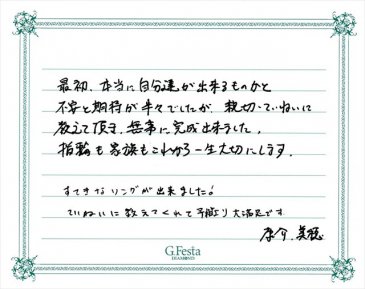 最初、本当に自分達が出来るものかと
不安と期待が半々でしたが、親切、ていねいに
教えて頂き、無事に完成出来ました。
指輪も家族もこれから一生大切にします。
すてきなリングが出来ました!
ていねいに教えてくれて予想より大満足です
G.Festa
DIAMONDS